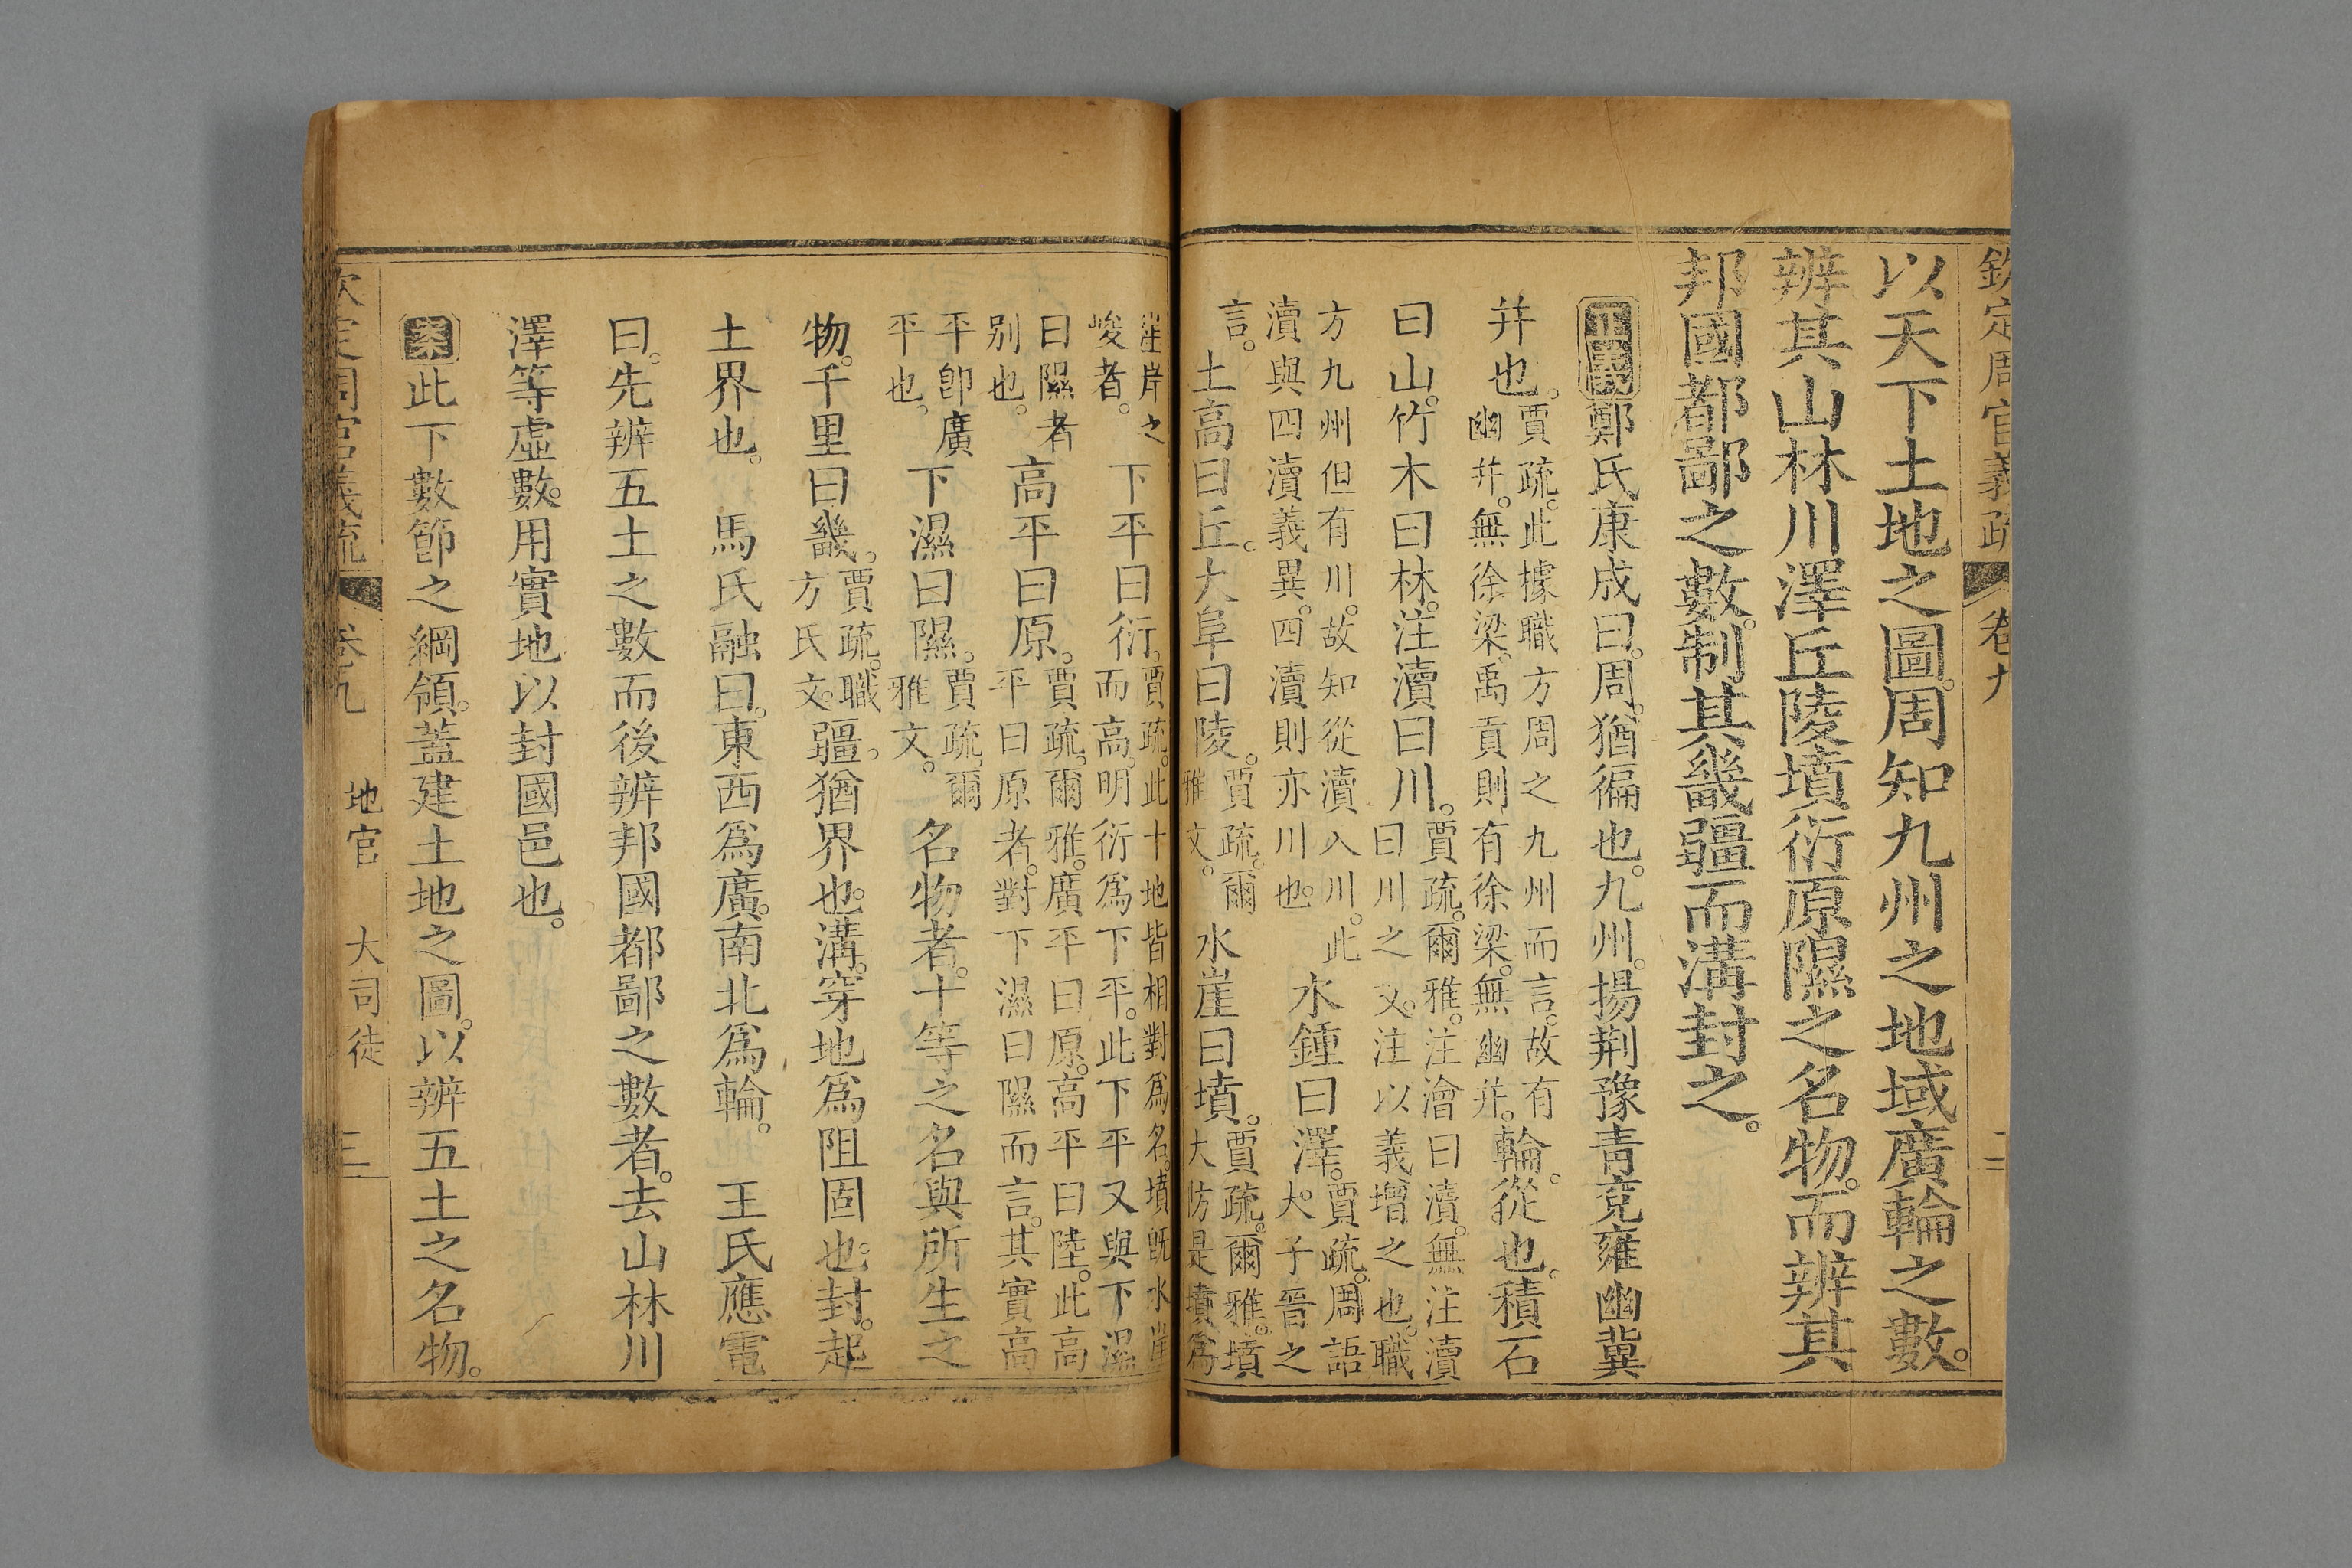 欽定周官義疏 卷九 二
以天下土地之圖。周知九州之地域廣輪之數。
辨其山林川澤丘陵墳衍原隰之名物。而辨其
邦國都鄙之數。制其畿疆而溝封之。
正義鄭氏康成曰。周。猶徧也。九州。揚荆豫青兗雍幽冀
幷也。賈疏。此據職方周之九州而言。故有幽幷。無徐梁。禹貢則有徐梁。無幽幷。輪。從也。積石
曰山。竹木曰林。注瀆曰川。賈疏。爾雅。注澮曰瀆。無注瀆曰川之文。注以義增之也。職
方九州但有川。故知從瀆入川。此瀆與四瀆義異。四瀆則亦川也。水鍾曰澤。賈疏。周語。大子晉之
言。土高曰丘。大阜曰陵。賈疏。爾雅文。水崖曰墳。賈疏。爾雅。墳大防是墳爲
崖岸之峻者。下平曰衍。賈疏。此十地皆相對爲名。墳旣水崖而高。明衍爲下平。此下平又與下濕
曰隰者別也。高平曰原。賈疏。爾雅。廣平曰原。高平曰陸。此高平曰原者。對下濕曰隰而言。其實高
平卽廣平也。下濕曰隰。賈疏。爾雅文。名物者。十等之名與所生之
物。千里曰畿。賈疏。職方氏文。疆。猶界也。溝。穿地爲阻固也。封。起
土界也。 馬氏融曰。東西爲廣。南北爲輪。 王氏應電
曰。先辨五土之數而後辨邦國都鄙之數者。去山林川
澤等虛數。用實地以封國邑也。
案此下數節之綱領。蓋建土地之圖。以辨五土之名物。
欽定周官義疏 卷九 地官 大司徒 三